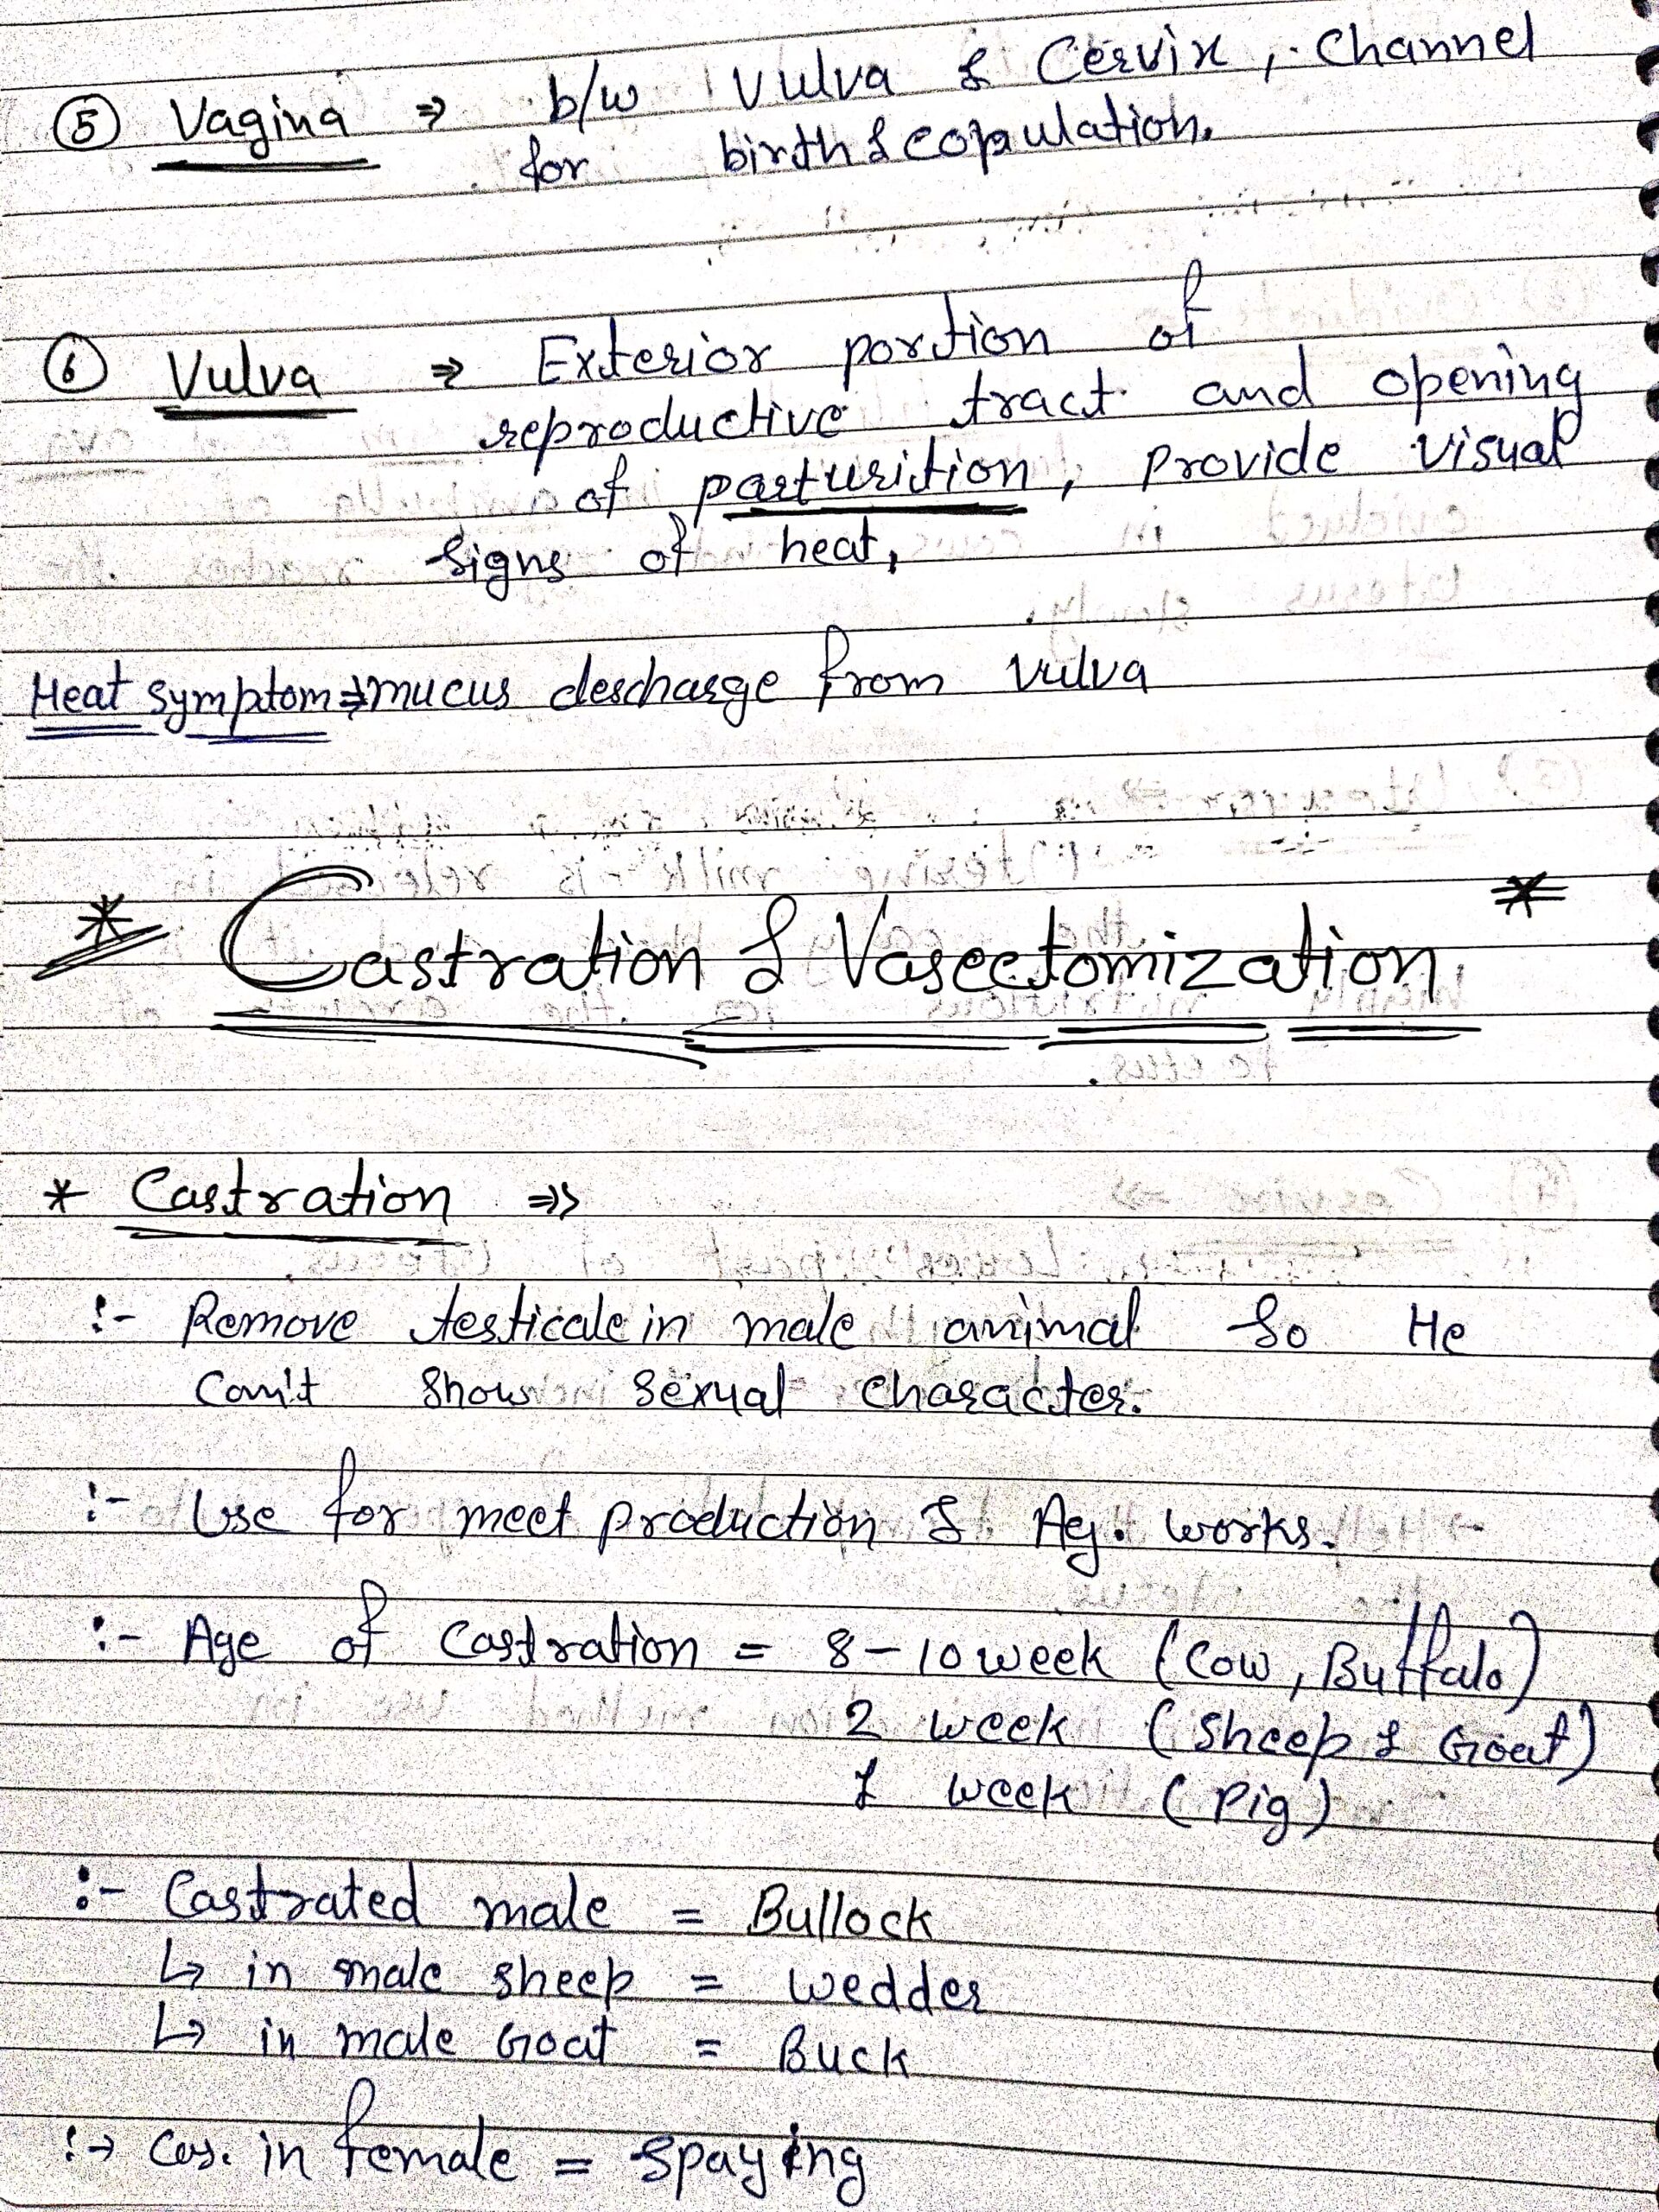 ⑤ Vagina ⇒ b/w Vulva & Cervix, Channel
for birth & copulation.
⑥ Vulva ⇒ Exterior portion of
reproductive tract and opening
of parturition, provide visual
signs of heat,
Heat symptom ⇒ mucus descharge from vulva
* Castration & Vasectomization *
* Castration ⇒
:- Remove testicale in male animal So He
Can't Show sexual character.
:- Use for meet production & Ag. works.
:- Age of Castration = 8-10 week (Cow, Buffalo)
2 week (Sheep & Goat)
1 week (Pig)
:- Castrated male = Bullock
↳ in male sheep = wedder
↳ in male Goat = Buck
:→ Cas. in female = Spaying